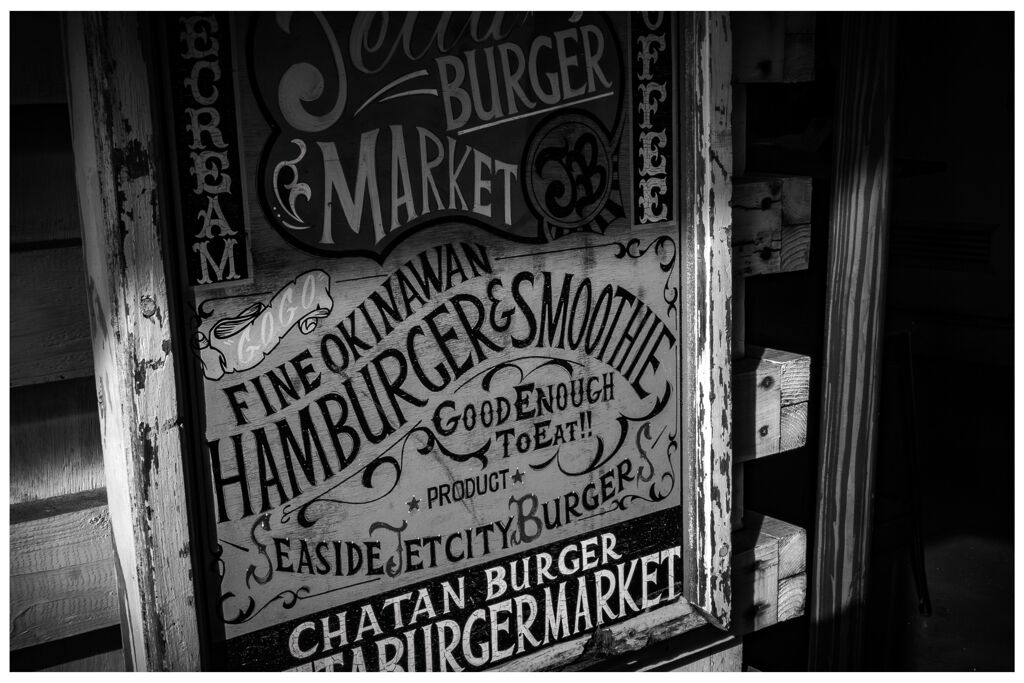 ECREAM
BURGER
MARKET
JBB
OFFEE
GOGO
FINE OKINAWAN
HAMBURGER & SMOOTHIE
GOOD ENOUGH
TO EAT!!
★ PRODUCT ★
SEASIDE JETCITY BURGERS
CHATAN BURGER
TABURGERMARKET